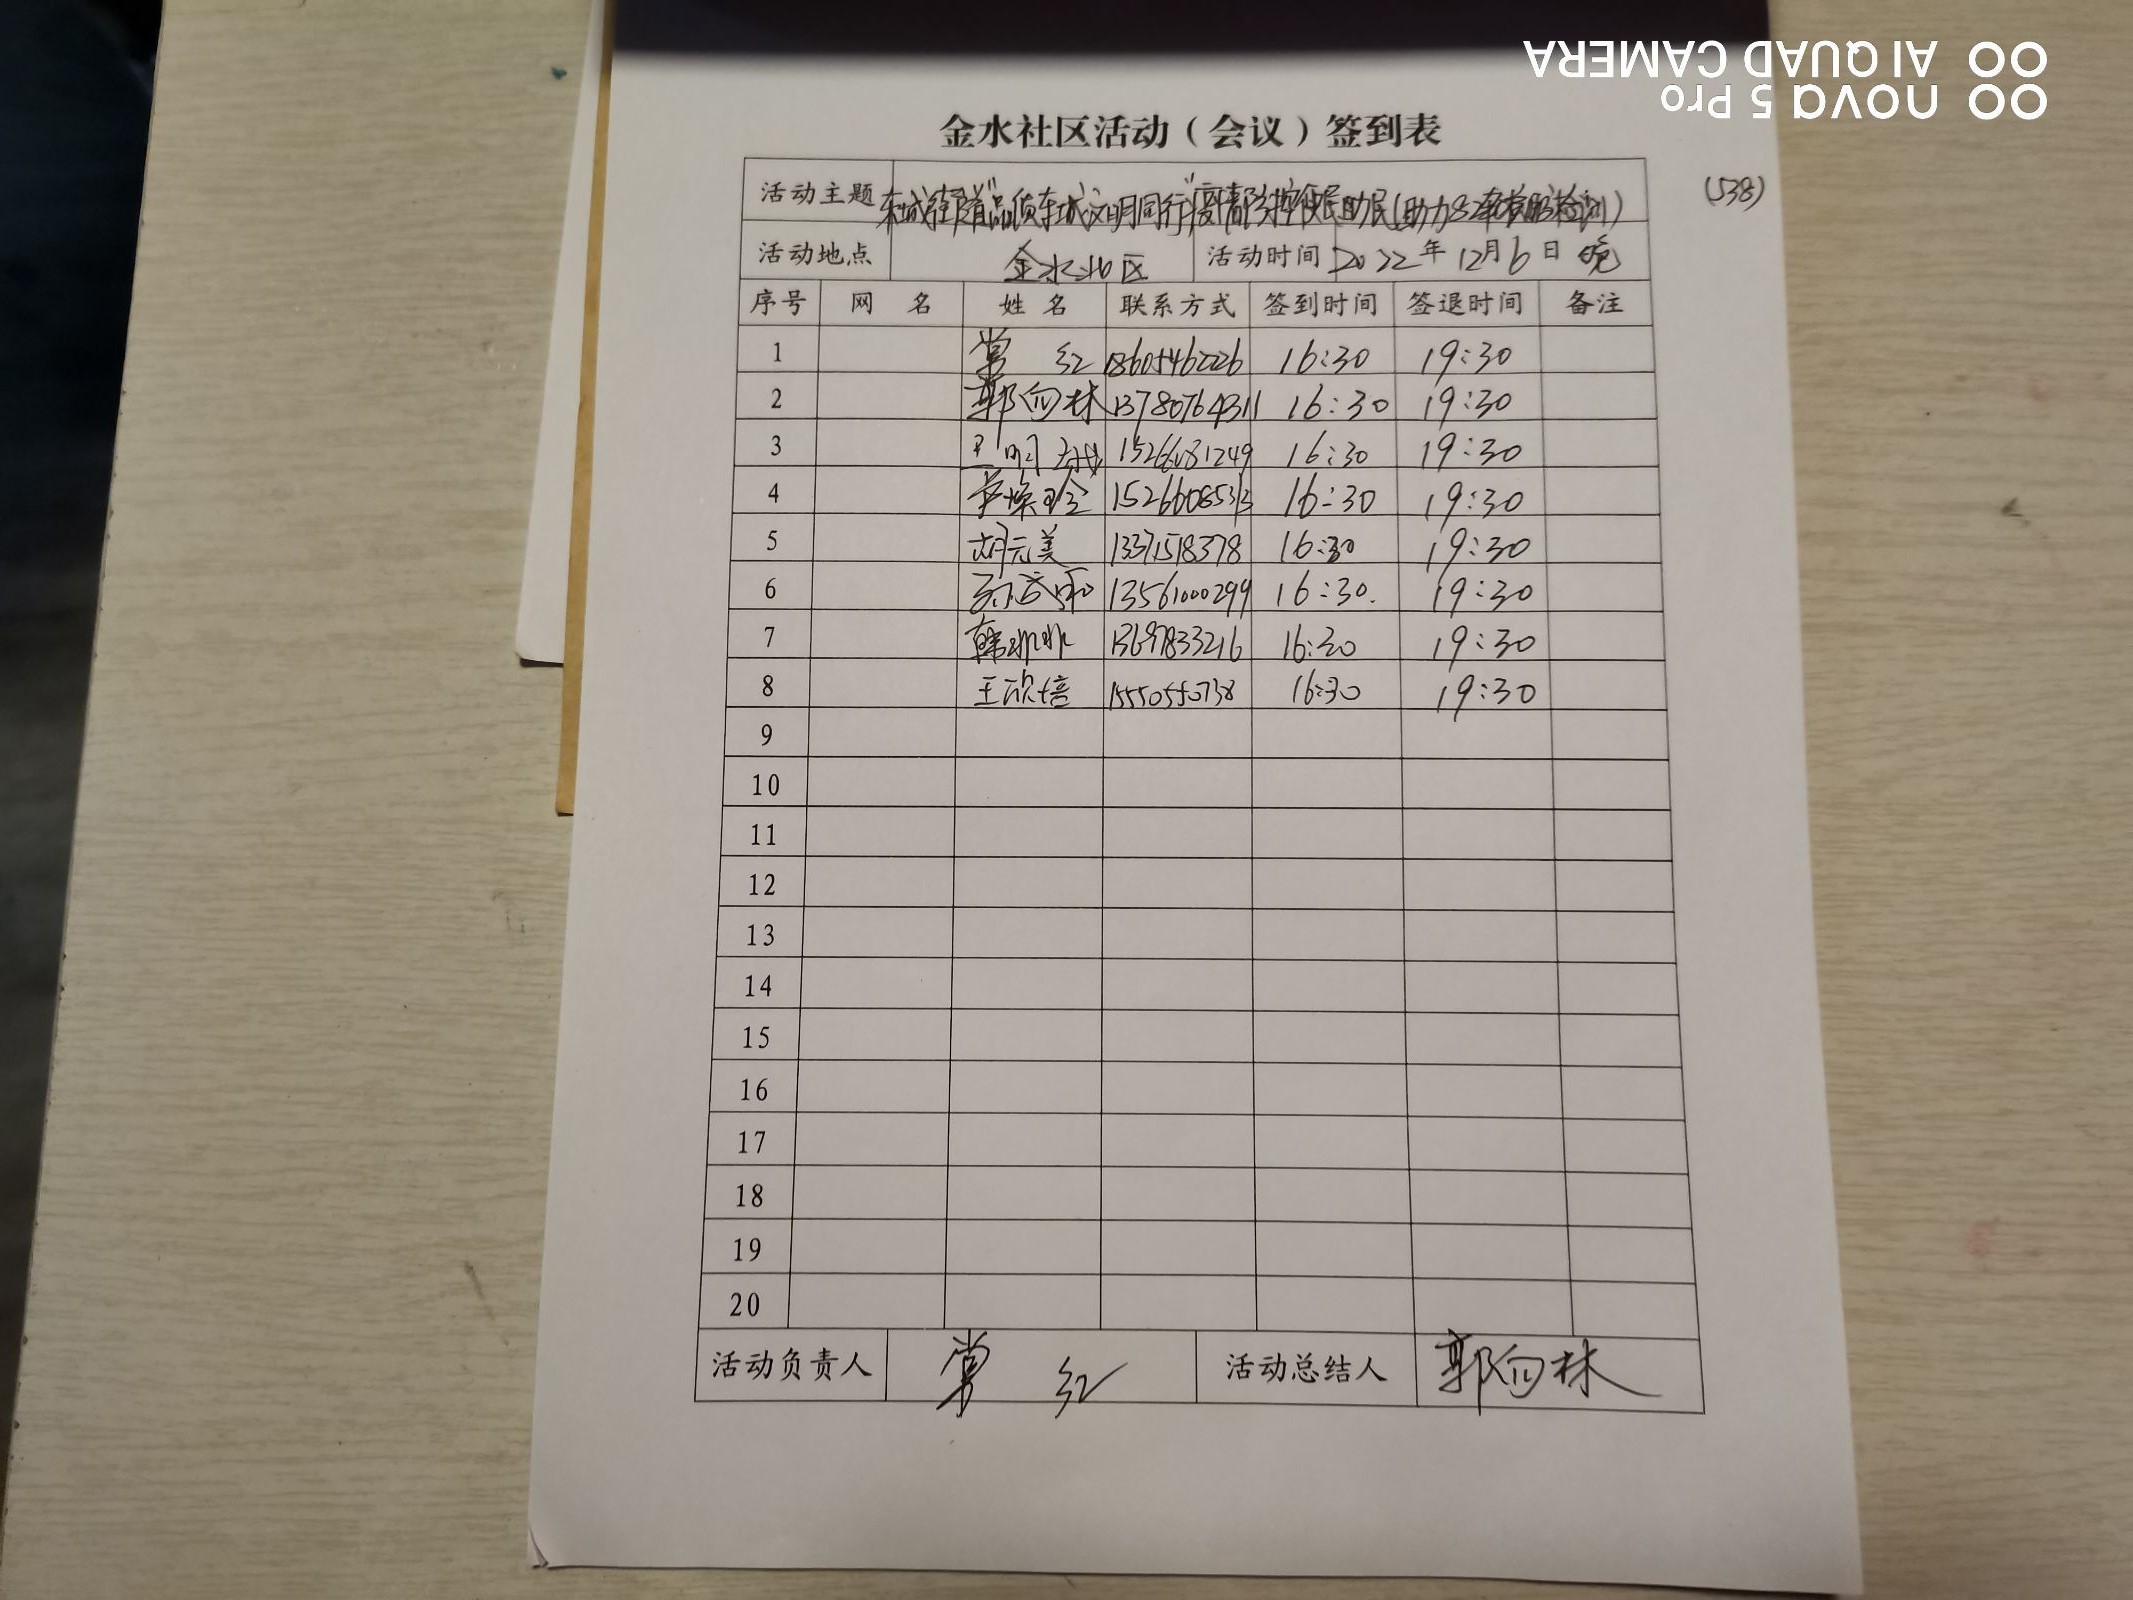 金水社区活动（会议）签到表
(538)
活动主题 东城街道"品质东城文明同行"疫情防控便民助民(助力82轮核酸检测)
活动地点 金水北区 活动时间 2022年12月6日 晚
序号 网 名 姓 名 联系方式 签到时间 签退时间 备注
1 常 红 16:30 19:30
2 郭向林 13780764311 16:30 19:30
3 15266081249 16:30 19:30
4 16:30 19:30
5 胡元美 13371518378 16:30 19:30
6 13561000299 16:30. 19:30
7 韩冰冰 13697833216 16:30 19:30
8 王欣培 15550550738 16:30 19:30
9
10
11
12
13
14
15
16
17
18
19
20
活动负责人 常 红 活动总结人 郭向林
nova 5 Pro
AI QUAD CAMERA